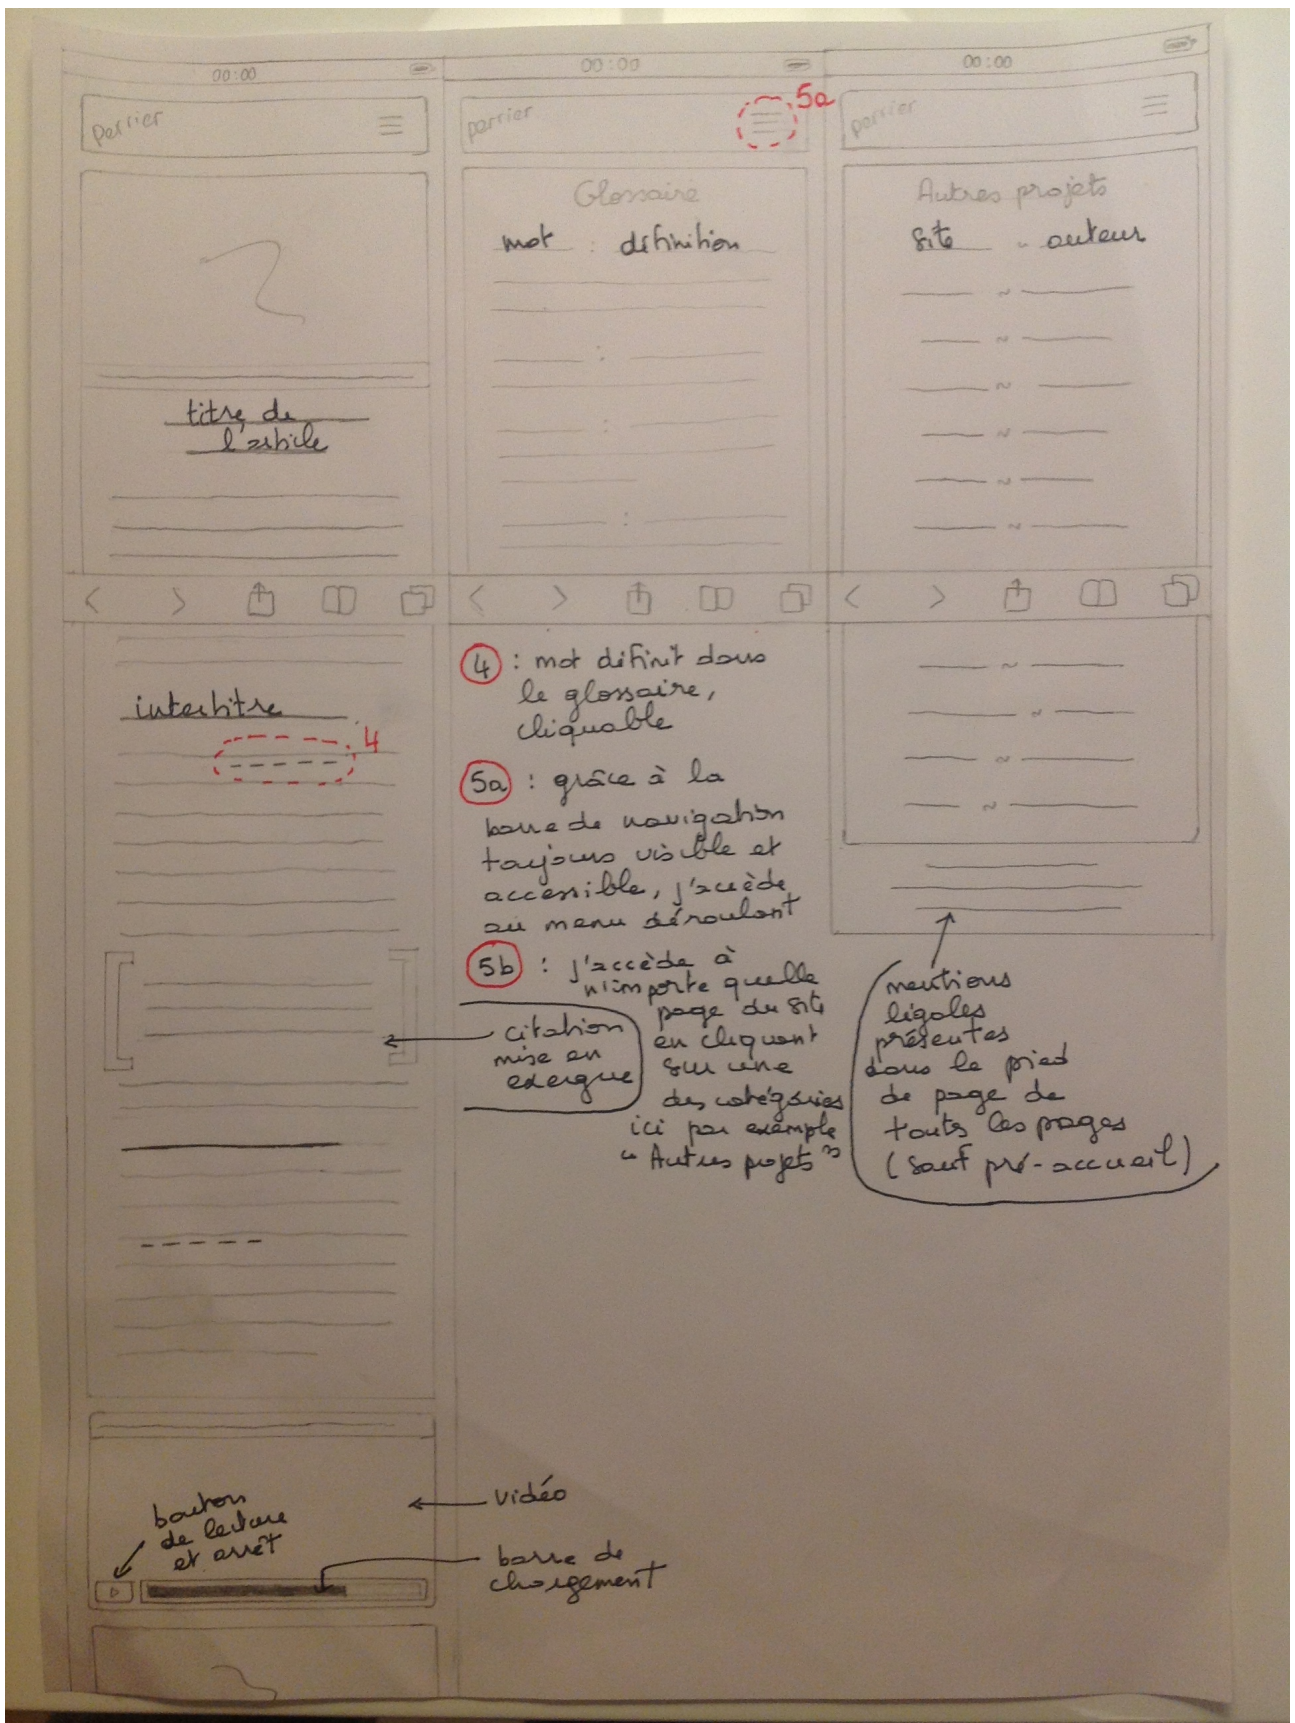 00:00
perrier
titre de
l'article
intertitre
4
bouton
de lecture
et arrêt
00:00
perrier
5a
Glossaire
mot : définition
4 : mot définit dans
le glossaire,
cliquable
5a : grâce à la
barre de navigation
toujours visible et
accessible, j'accède
au menu déroulant
5b : j'accède à
n'importe quelle
page du site
en cliquant
sur une
des catégories
ici par exemple
"Autres projets"
citation
mise en
exergue
vidéo
barre de
chargement
00:00
perrier
Autres projets
site ~ auteur
mentions
légales
présentes
dans le pied
de page de
toutes les pages
(sauf pré-accueil)